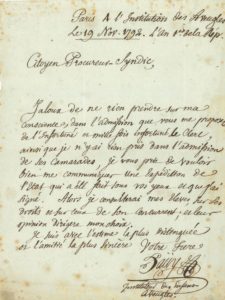 Paris A l'Institution des Aveugles
Le 19 Nov. 1792. L'an 1er de la Rép.
Citoyen Procureur Syndic,
Jaloux de ne rien prendre sur ma
conscience, dans l'admission que vous me proposez
de l'Infortuné et mille fois infortuné le Clerc,
ainsi que je n'y ai rien pris dans l'admission
de ses Camarades, je vous prie de vouloir
bien me communiquer une Expédition de
l'Etat qui a été fait sous vos yeux et que j'ai
signé. Alors je consulterai mes élèves sur les
droits et sur ceux de son concurrent, et leur
opinion dirigera mon choix.
Je suis avec l'estime la plus
et l'amitié la plus sincère Votre Frere
haüy
Instituteur des
aveugles.